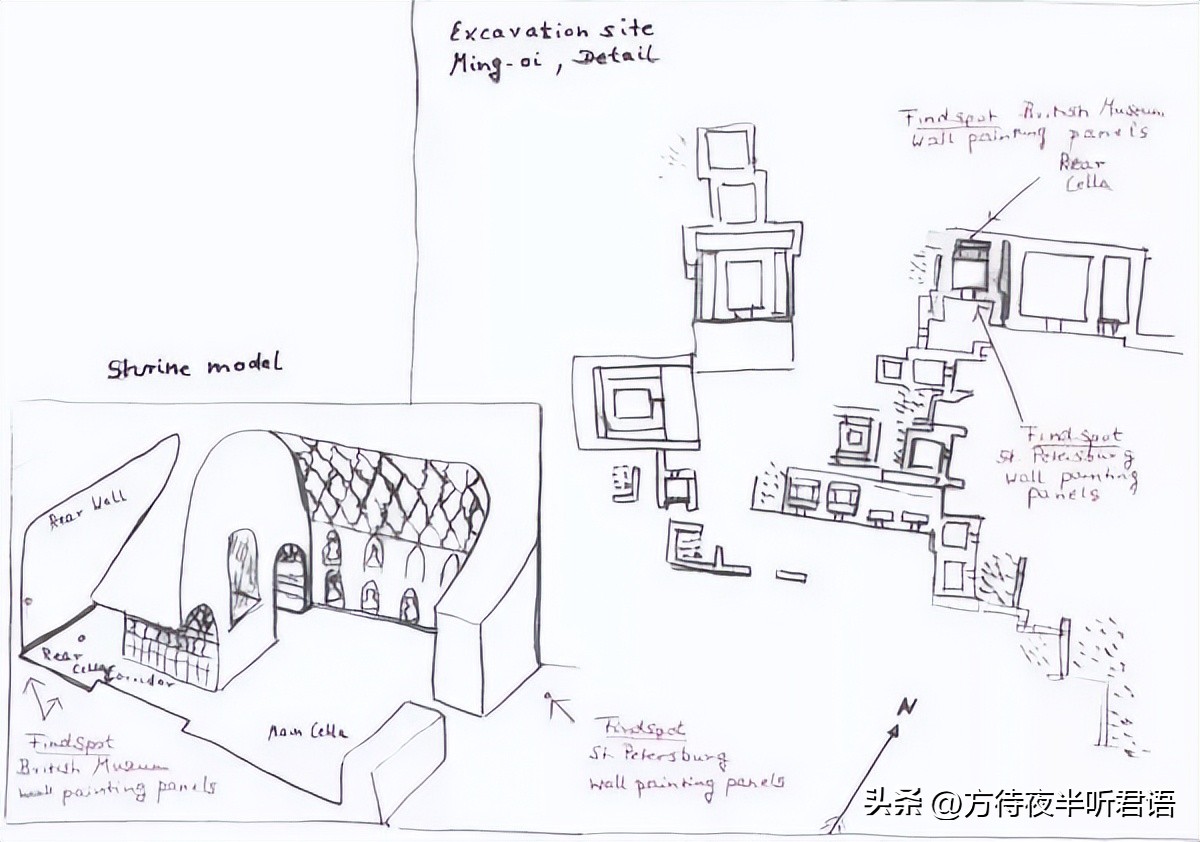 Excavation site
Ming-oi, Detail
Findspot British Museum
wall painting panels
Rear
Cella
Findspot
St. Petersburg
wall painting
panels
Shrine model
Rear Wall
Rear
Cella
Corridor
Main Cella
Findspot
British Museum
wall painting panels
Findspot
St. Petersburg
wall painting panels
N
头条 @方待夜半听君语